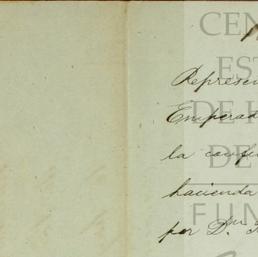 CEN
EST
DE H
DE
FUN
Represen
Emperad
la confe
hacienda
por Dn